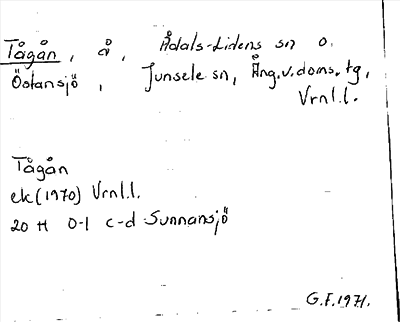 Tågån, å, Ådals-Lidens sn o.
Östansjö, Junsele sn, Ång.v.doms.tg,
Vrnl.l.
Tågån
ek(1970) Vrnl.l.
20 H 0-1 c-d Sunnansjö
G.F.1971.